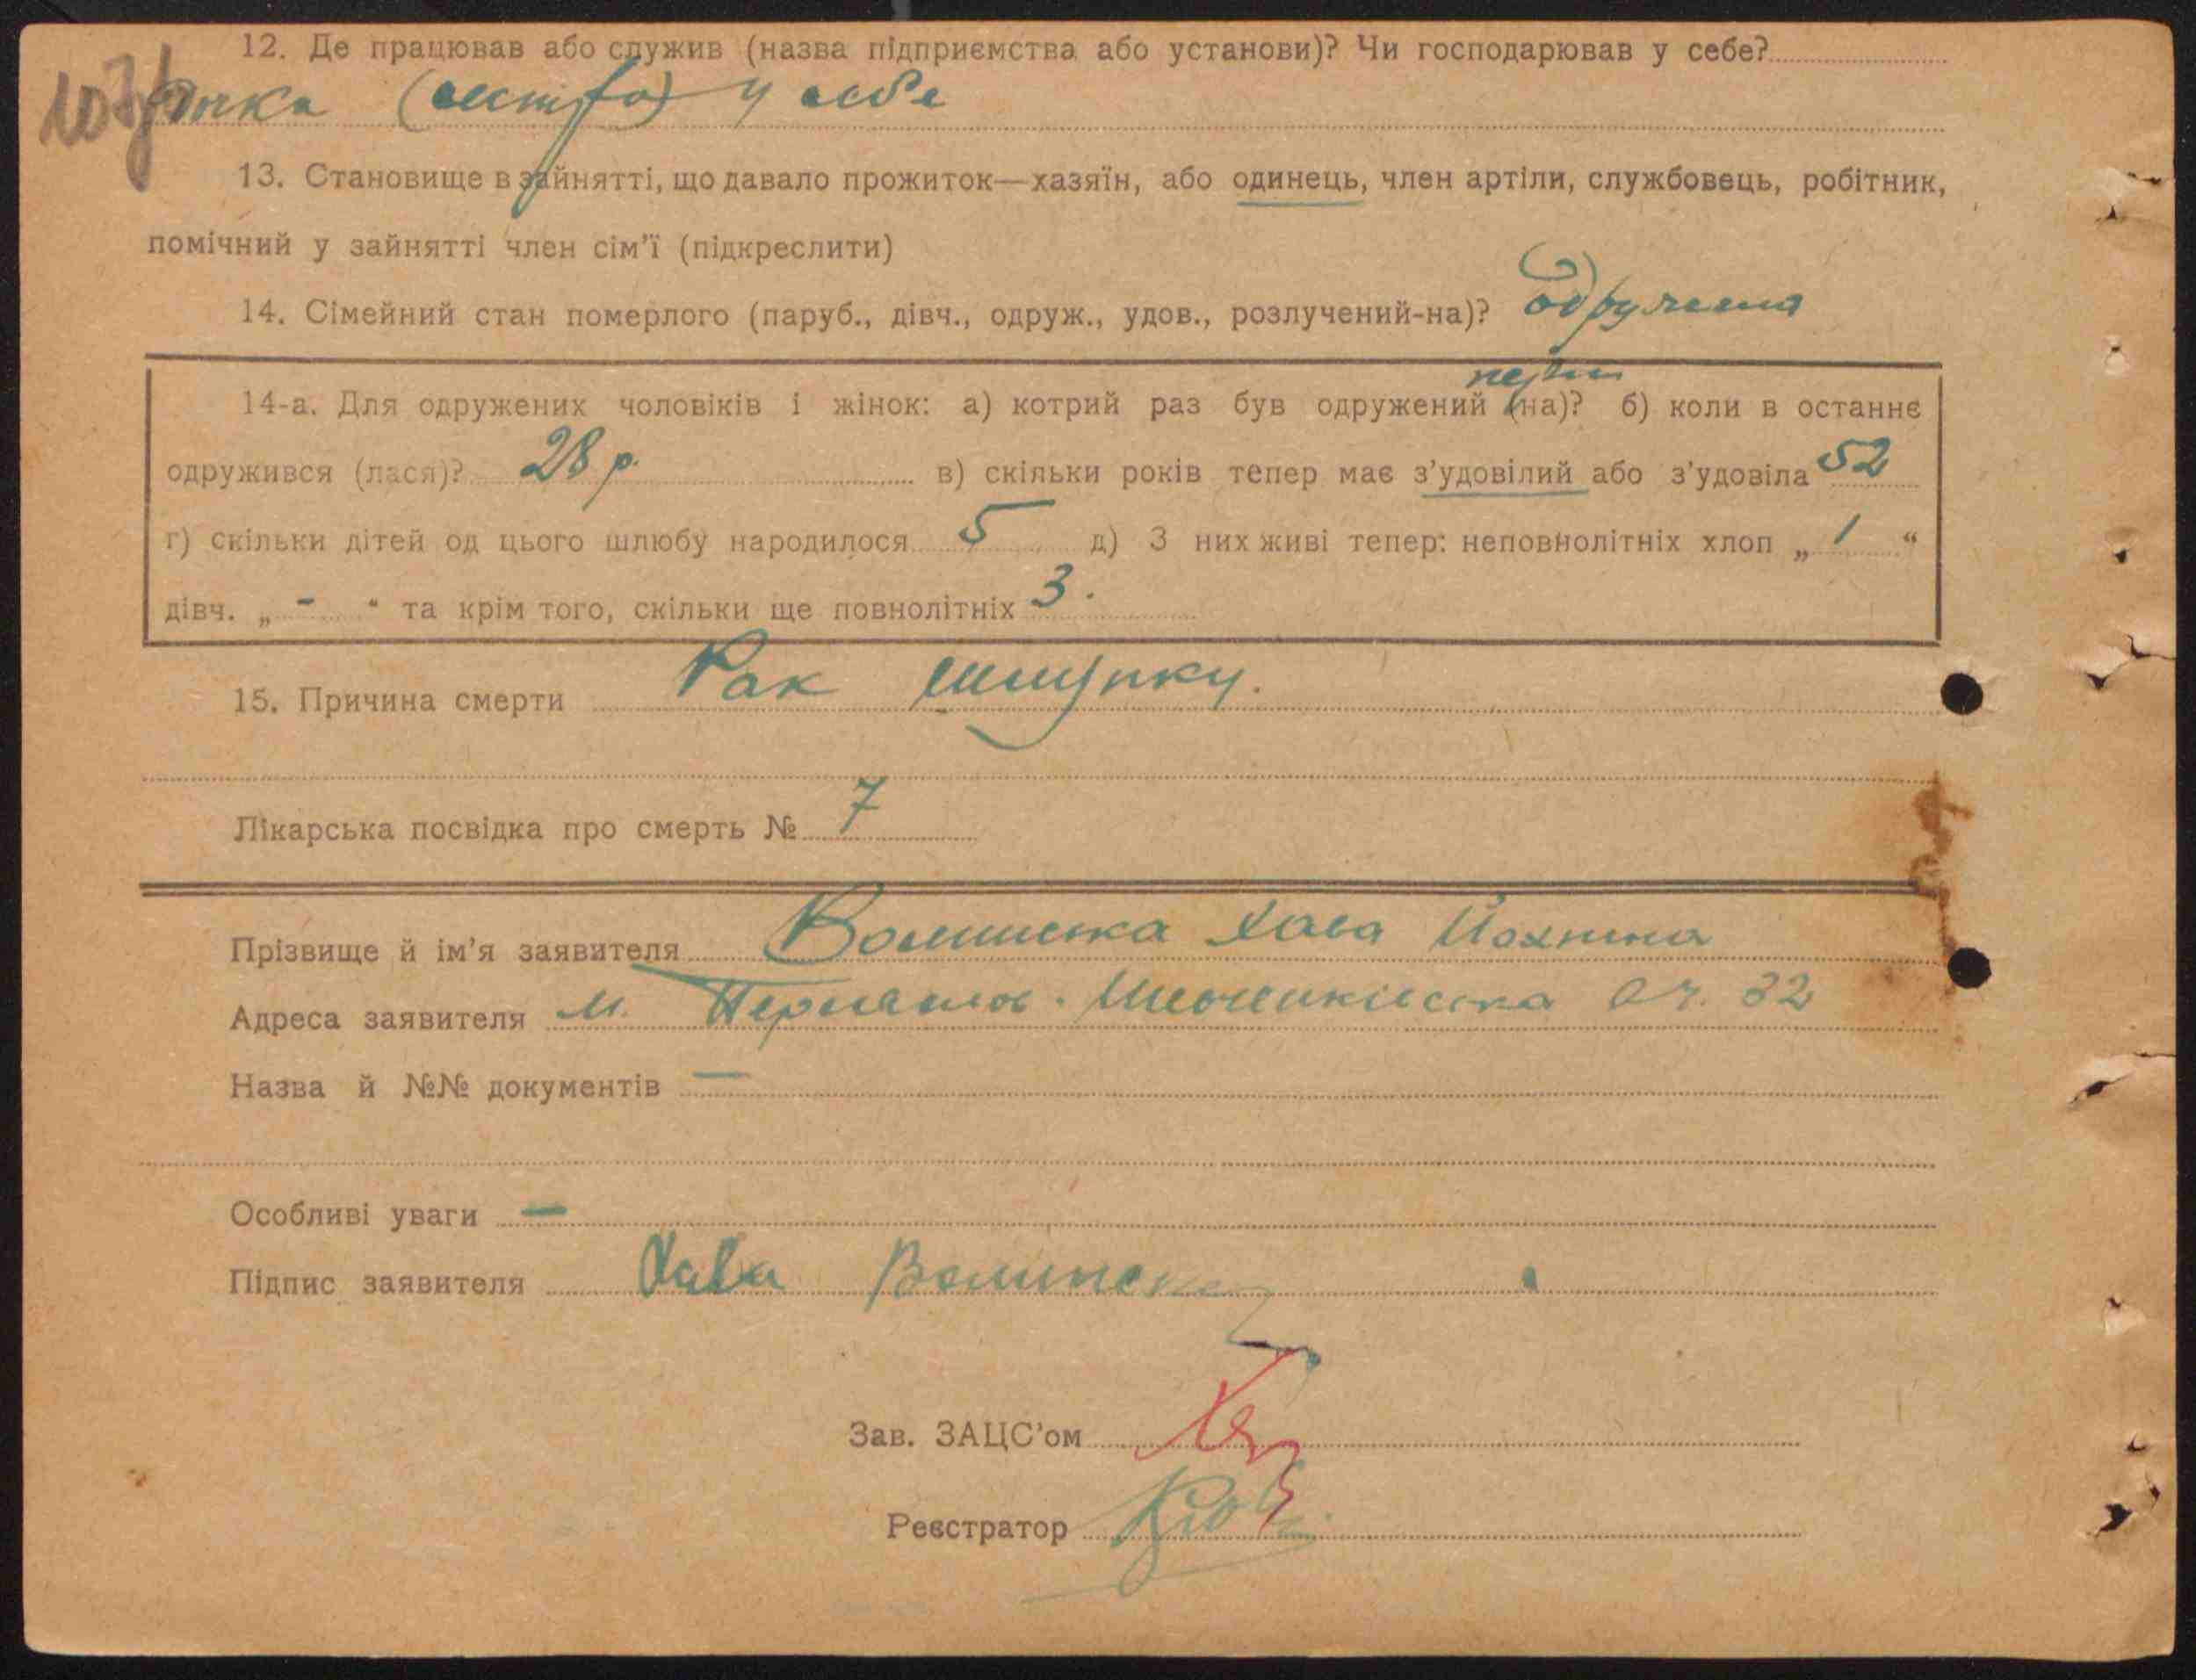 12. Де працював або служив (назва підприємства або установи)? Чи господарював у себе?
107 у себе
13. Становище в зайнятті, що давало прожиток—хазяїн, або одинець, член артіли, службовець, робітник,
помічний у зайнятті член сім'ї (підкреслити)
14. Сімейний стан померлого (паруб., дівч., одруж., удов., розлучений-на)? Одружена
14-а. Для одружених чоловіків і жінок: а) котрий раз був одружений (на)? б) коли в останнє
одружився (лася)? 28 р. в) скільки років тепер має з'удовілий або з'удовіла 52
г) скільки дітей од цього шлюбу народилося 5 д) З них живі тепер: неповнолітніх хлоп „ 1 “
дівч. „ - “ та крім того, скільки ще повнолітніх 3.
15. Причина смерти Рак шлунку.
Лікарська посвідка про смерть № 7
Прізвище й ім'я заявителя Волинська Хава
Адреса заявителя м. 32
Назва й №№ документів —
Особливі уваги —
Підпис заявителя Хава Волинська
Зав. ЗАЦС'ом
Реєстратор